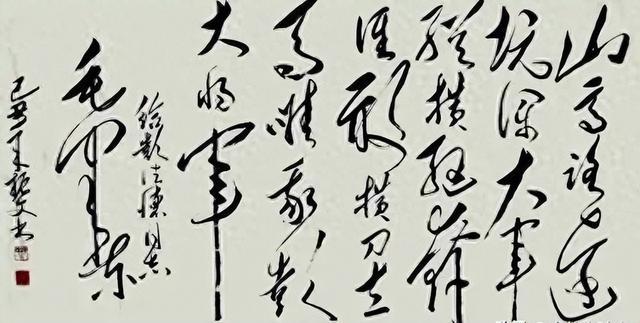 山高路遠
坑深大軍
縱横馳奔
誰敢横刀立
馬唯我彭
大將軍
給彭德懷同志
毛澤東
己丑年